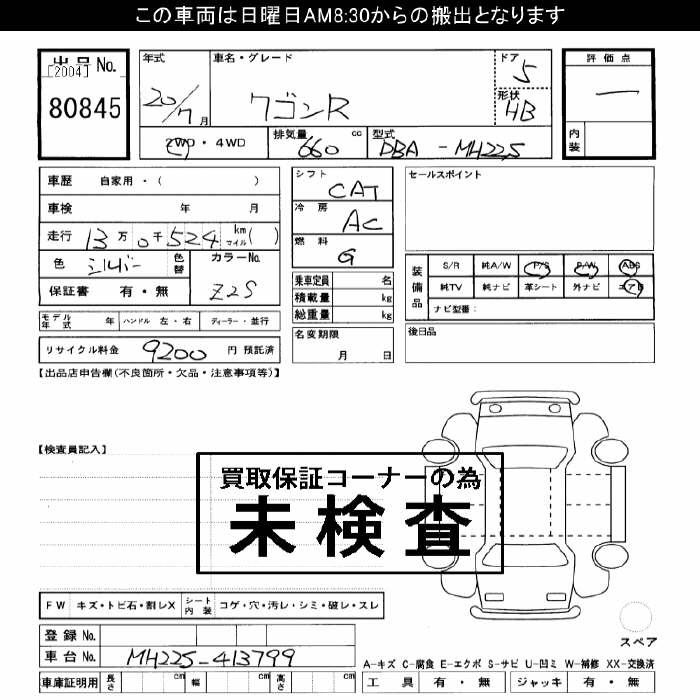 この車両は日曜日AM8:30からの搬出となります
出品 No.
[2004]
80845
年式
20/7 月
車名・グレード
ワゴンR
ドア
5
形状
HB
評価点
一
内装
2WD・4WD
排気量
660 cc
型式
DBA - MH22S
車歴 自家用・( )
車検 年 月
走行 13万0千524 km マイル( )
色 シルバー 色替
カラーNo. Z2S
保証書 有・無
モデル年式 年 ハンドル 左・右 ディーラー・並行
リサイクル料金 9200 円 預託済
シフト CAT
冷房 AC
燃料 G
乗車定員 名
積載量 kg
総重量 kg
名変期限
月 日
セールスポイント
装備品
S/R 純A/W P/S P/W ABS
純TV 純ナビ 革シート 外ナビ エアB
ナビ型番:
後日品
【出品店申告欄(不良箇所・欠品・注意事項等)】
【検査員記入】
買取保証コーナーの為
未検査
FW キズ・トビ石・割レX シート内装 コゲ・穴・汚レ・シミ・破レ・スレ
登録 No.
車台 No. MH22S-413799
車庫証明用 長さ cm 幅 cm 高さ cm
スペア
A-キズ C-腐食 E-エクボ S-サビ U-凹ミ W-補修 XX-交換済
工具 有・無 ジャッキ 有・無